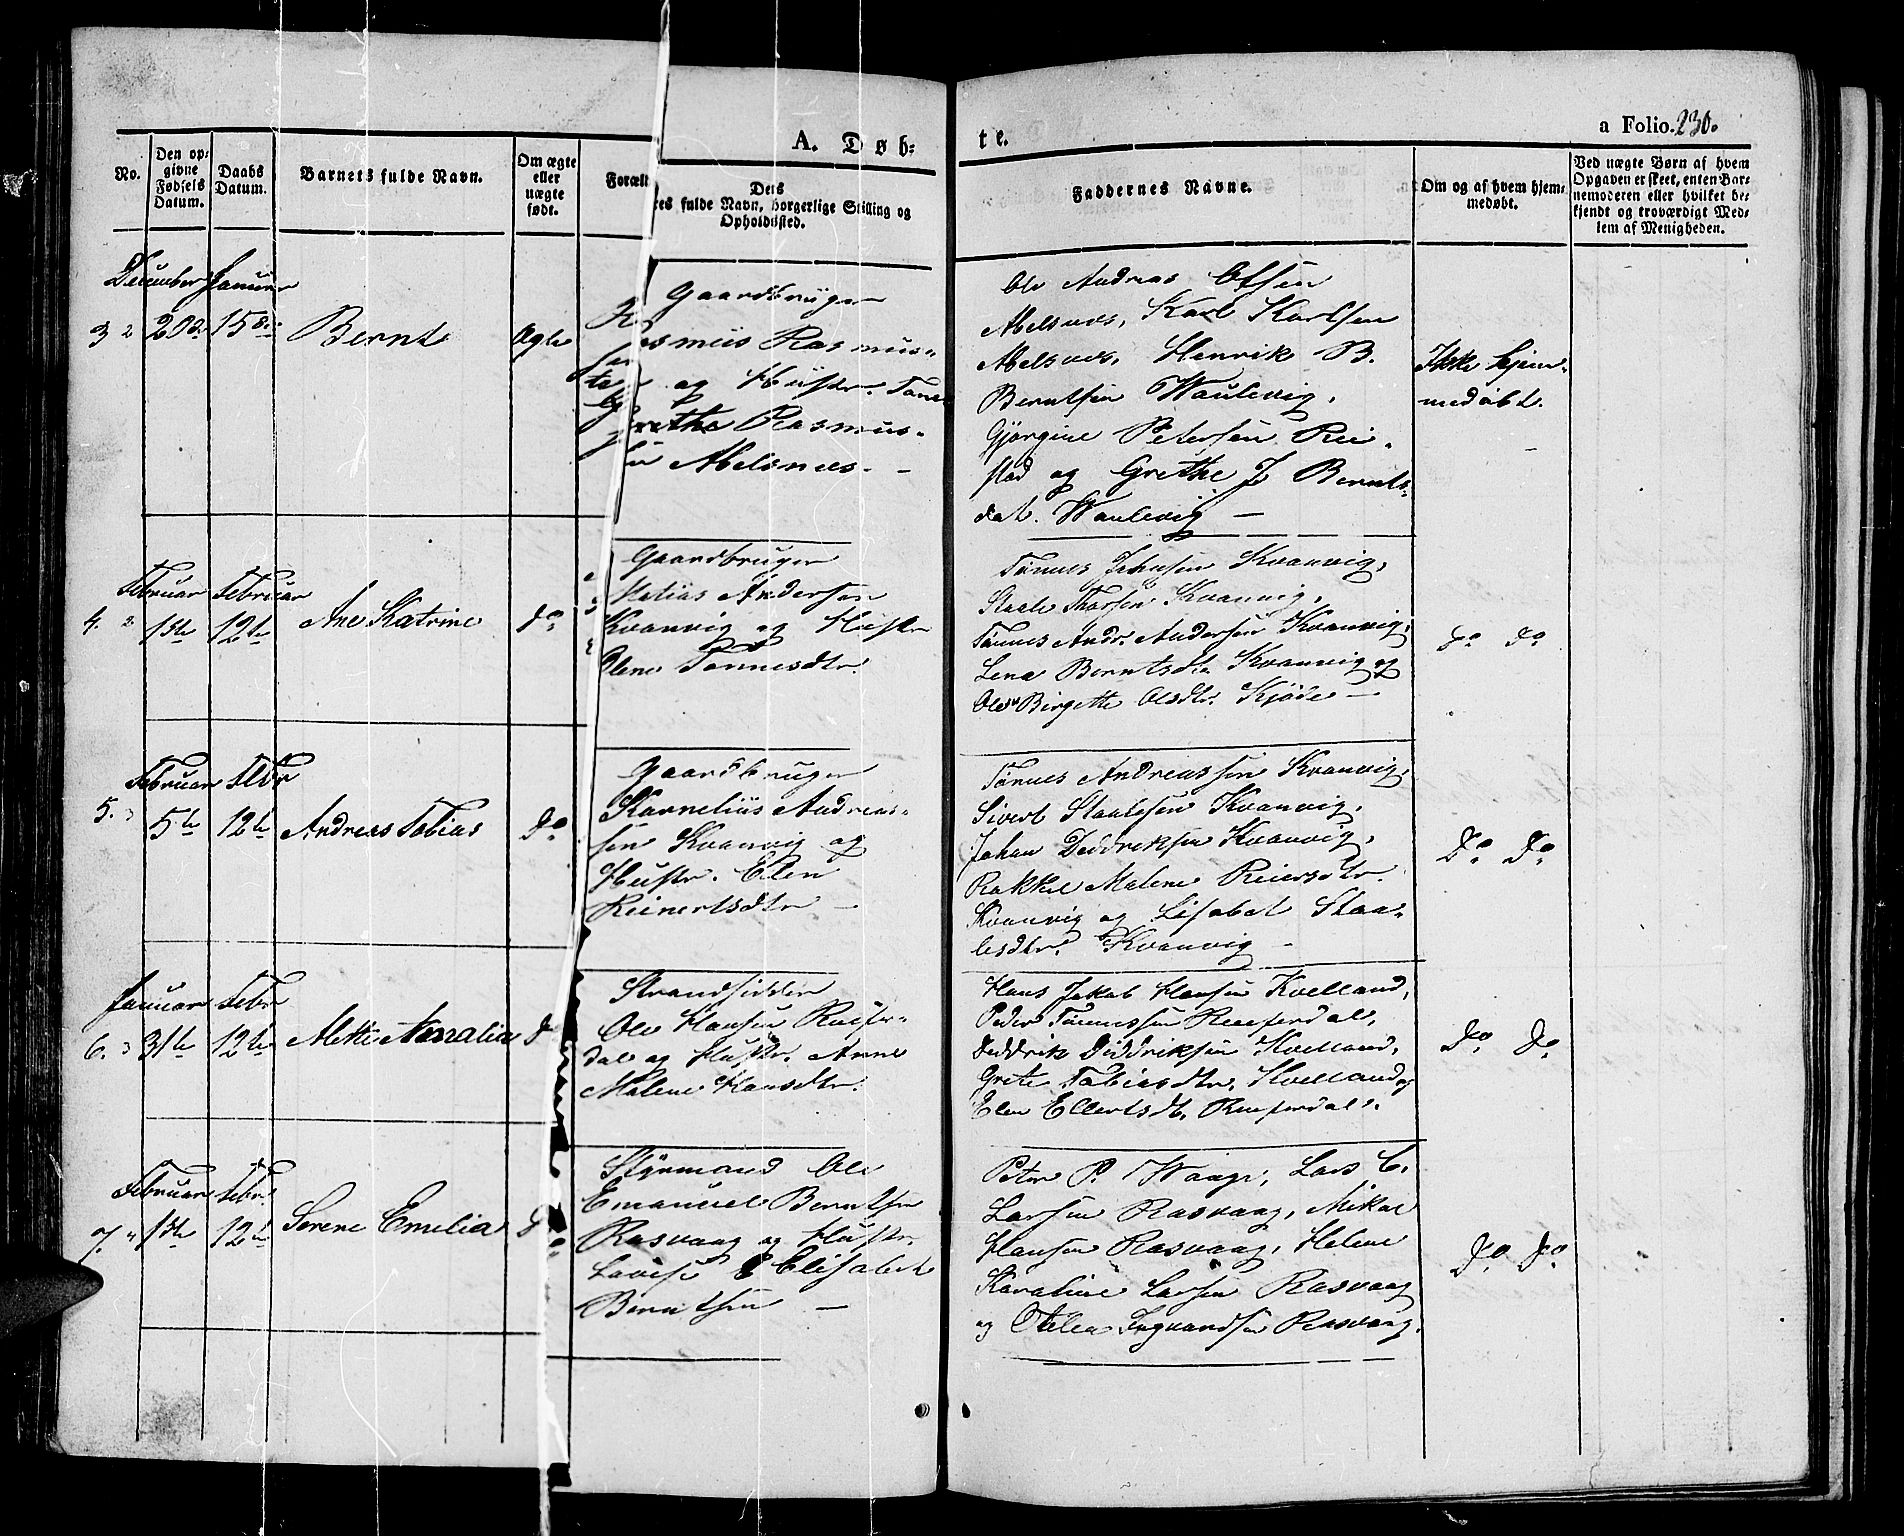 A. Døb-
te.
a Folio. 230.
No.
Den op-
givne
Fødsels
Datum.
Daabs
Datum.
Barnets fulde Navn.
Om ægte
eller
uægte
født.
Foræld
Dets
res fulde Navn, borgerlige Stilling og
Opholdssted.
Faddernes Navne.
Om og af hvem hjem-
medøbt.
Ved uægte Børn af hvem
Opgaven er skeet, enten Bar-
nemoderen eller hvilket be-
kjendt og troværdigt Med-
lem af Menigheden.
December Januar
3 20de 15de Bernt Ægte
Gaardbruger
Rasmus Rasmus-
sen og Hustr. Tone
Grethe Rasmus-
Abelsnæs. -
Ole Andreas Olsen
Abelsnæs, Karl Karlsen
Abelsnæs, Henrik B.
Berntsen Waulevig,
Gjørgine Petersen Rei-
stad og Grethe J Bernts-
dat. Waulevig -
Ikke hjem-
medøbt.
Februar Februar
4. 1ste 12te Ane Katrine Do
Gaardbruger
Matias Andersen
Kvanvig og Hustr
Elene Tønnesdtr.
Tønnes Johnsen Kvanvig,
Staale Thorsen Kvanvig,
Tønnes Andr. Andersen Kvanvig,
Lena Berntsdtr Kvanvig og
Birgette Olsdtr. Kjøde -
Do Do
Februar Febr
5. 5te 12te Andreas Tobias Do
Gaardbruger
Karnelius Andreas-
sen Kvanvig og
Hustr. Elen
Reinertsdtr -
Tønnes Andreassen Kvanvig,
Sivert Staalesen Kvanvig,
Johan Deddriksen Kvanvig,
Rakkel Malene Reiersdtr.
Kvanvig og Lisabet Staa-
lesdtr. Kvanvig -
Do Do
Januar Febr
6. 31te 12te Mette Amalia D
Strandsidder
Ole Hansen Reefer-
dal og Hustr. Anne
Malene Hansdtr.
Hans Jakob Hansen Kvelland,
Peder Tønnessen Reeferdal,
Deddrik Diddriksen Kvelland,
Grete Tobiasdtr. Kvelland og
Elen Ellertsdt. Reeferdal.
Do Do
Februar Febr.
7. 1ste 12te Serene Emelia D
Styrmand Ole
Emanuel Berntsen
Rasvaag og Hustr.
Lovise E Elisabet
Berntsen -
Peter P. Waage, Lars C.
Larsen Rasvaag, Mikal
Hansen Rasvaag, Helene
Karaline Larsen Rasvaag
og Otelea Ingvandsen Rasvaag.
Do Do